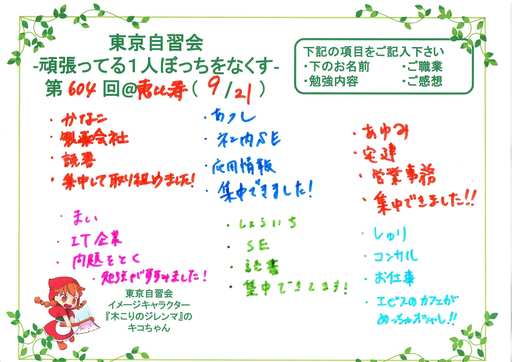 東京自習会
-頑張ってる1人ぼっちをなくす-
第604回@恵比寿(9/21)
下記の項目をご記入下さい
・下のお名前 ・ご職業
・勉強内容 ・ご感想
・かなこ
・製薬会社
・読書
・集中して取り組めました!
・あつし
・ネン内SE
・応用情報
・集中できました!
・あゆみ
・宅建
・営業事務
・集中できました!!
・まい
・IT企業
・問題をとく
・勉強がすすみました!
・しょういち
・SE
・読書
・集中できてます!
・しゅり
・コンサル
・お仕事
・エビスのカフェが
めっちゃオシャレ!!
東京自習会
イメージキャラクター
『木こりのジレンマ』の
キコちゃん